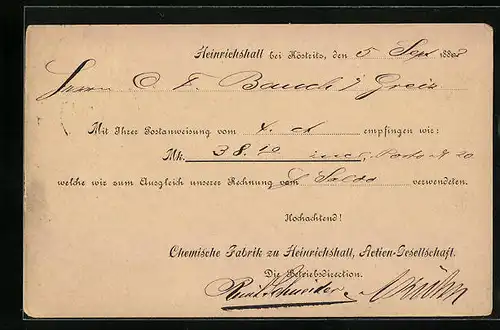 Heinrichshall bei Köstritz, den 5 Sept 1888
Herrn C. F. Bauch, Greiz
Mit Ihrer Postanweisung vom 4. ct empfingen wir:
Mk. 38.10 incl. Porto 20
welche wir zum Ausgleich unserer Rechnung vom Saldo verwendeten.
Hochachtend!
Chemische Fabrik zu Heinrichshall, Actien-Gesellschaft.
Die Betriebsdirection.
Schneider